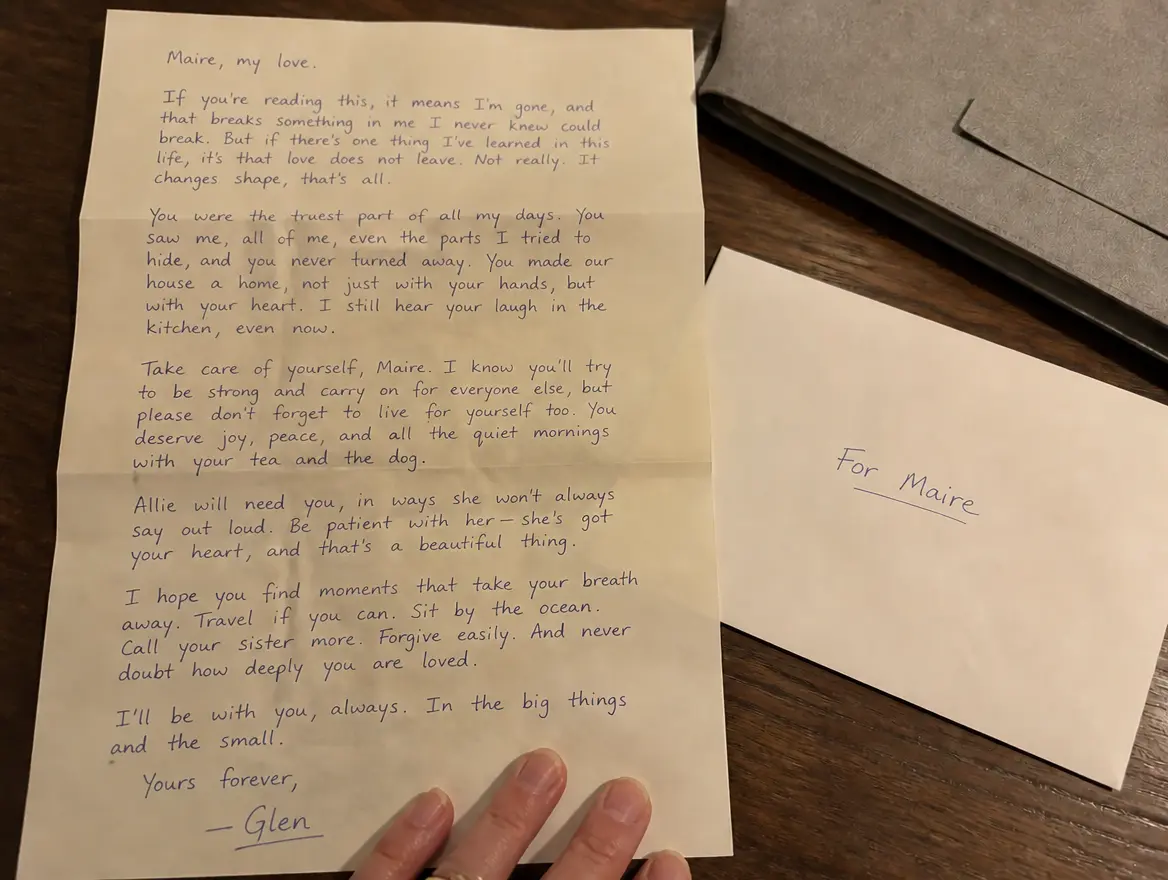 Maire, my love.
If you're reading this, it means I'm gone, and
that breaks something in me I never knew could
break. But if there's one thing I've learned in this
life, it's that love does not leave. Not really. It
changes shape, that's all.
You were the truest part of all my days. You
saw me, all of me, even the parts I tried to
hide, and you never turned away. You made our
house a home, not just with your hands, but
with your heart. I still hear your laugh in the
kitchen, even now.
Take care of yourself, Maire. I know you'll try
to be strong and carry on for everyone else, but
please don't forget to live for yourself too. You
deserve joy, peace, and all the quiet mornings
with your tea and the dog.
Allie will need you, in ways she won't always
say out loud. Be patient with her — she's got
your heart, and that's a beautiful thing.
I hope you find moments that take your breath
away. Travel if you can. Sit by the ocean.
Call your sister more. Forgive easily. And never
doubt how deeply you are loved.
I'll be with you, always. In the big things
and the small.
Yours forever,
— Glen
For Maire